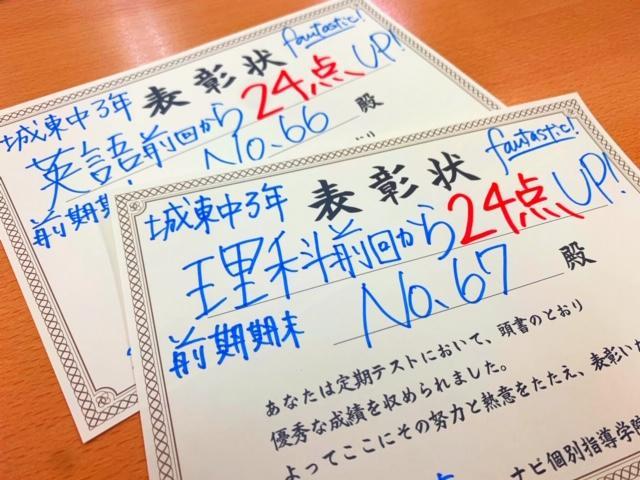 fantastic!
城東中3年 表彰状
英語前回から24点UP!
No.66 殿
前期期
fantastic!
城東中3年 表彰状
理科前回から24点UP!
前期期末 No.67 殿
あなたは定期テストにおいて、頭書のとおり
優秀な成績を収められました。
よってここにその努力と熱意をたたえ、表彰いた
ナビ個別指導学院